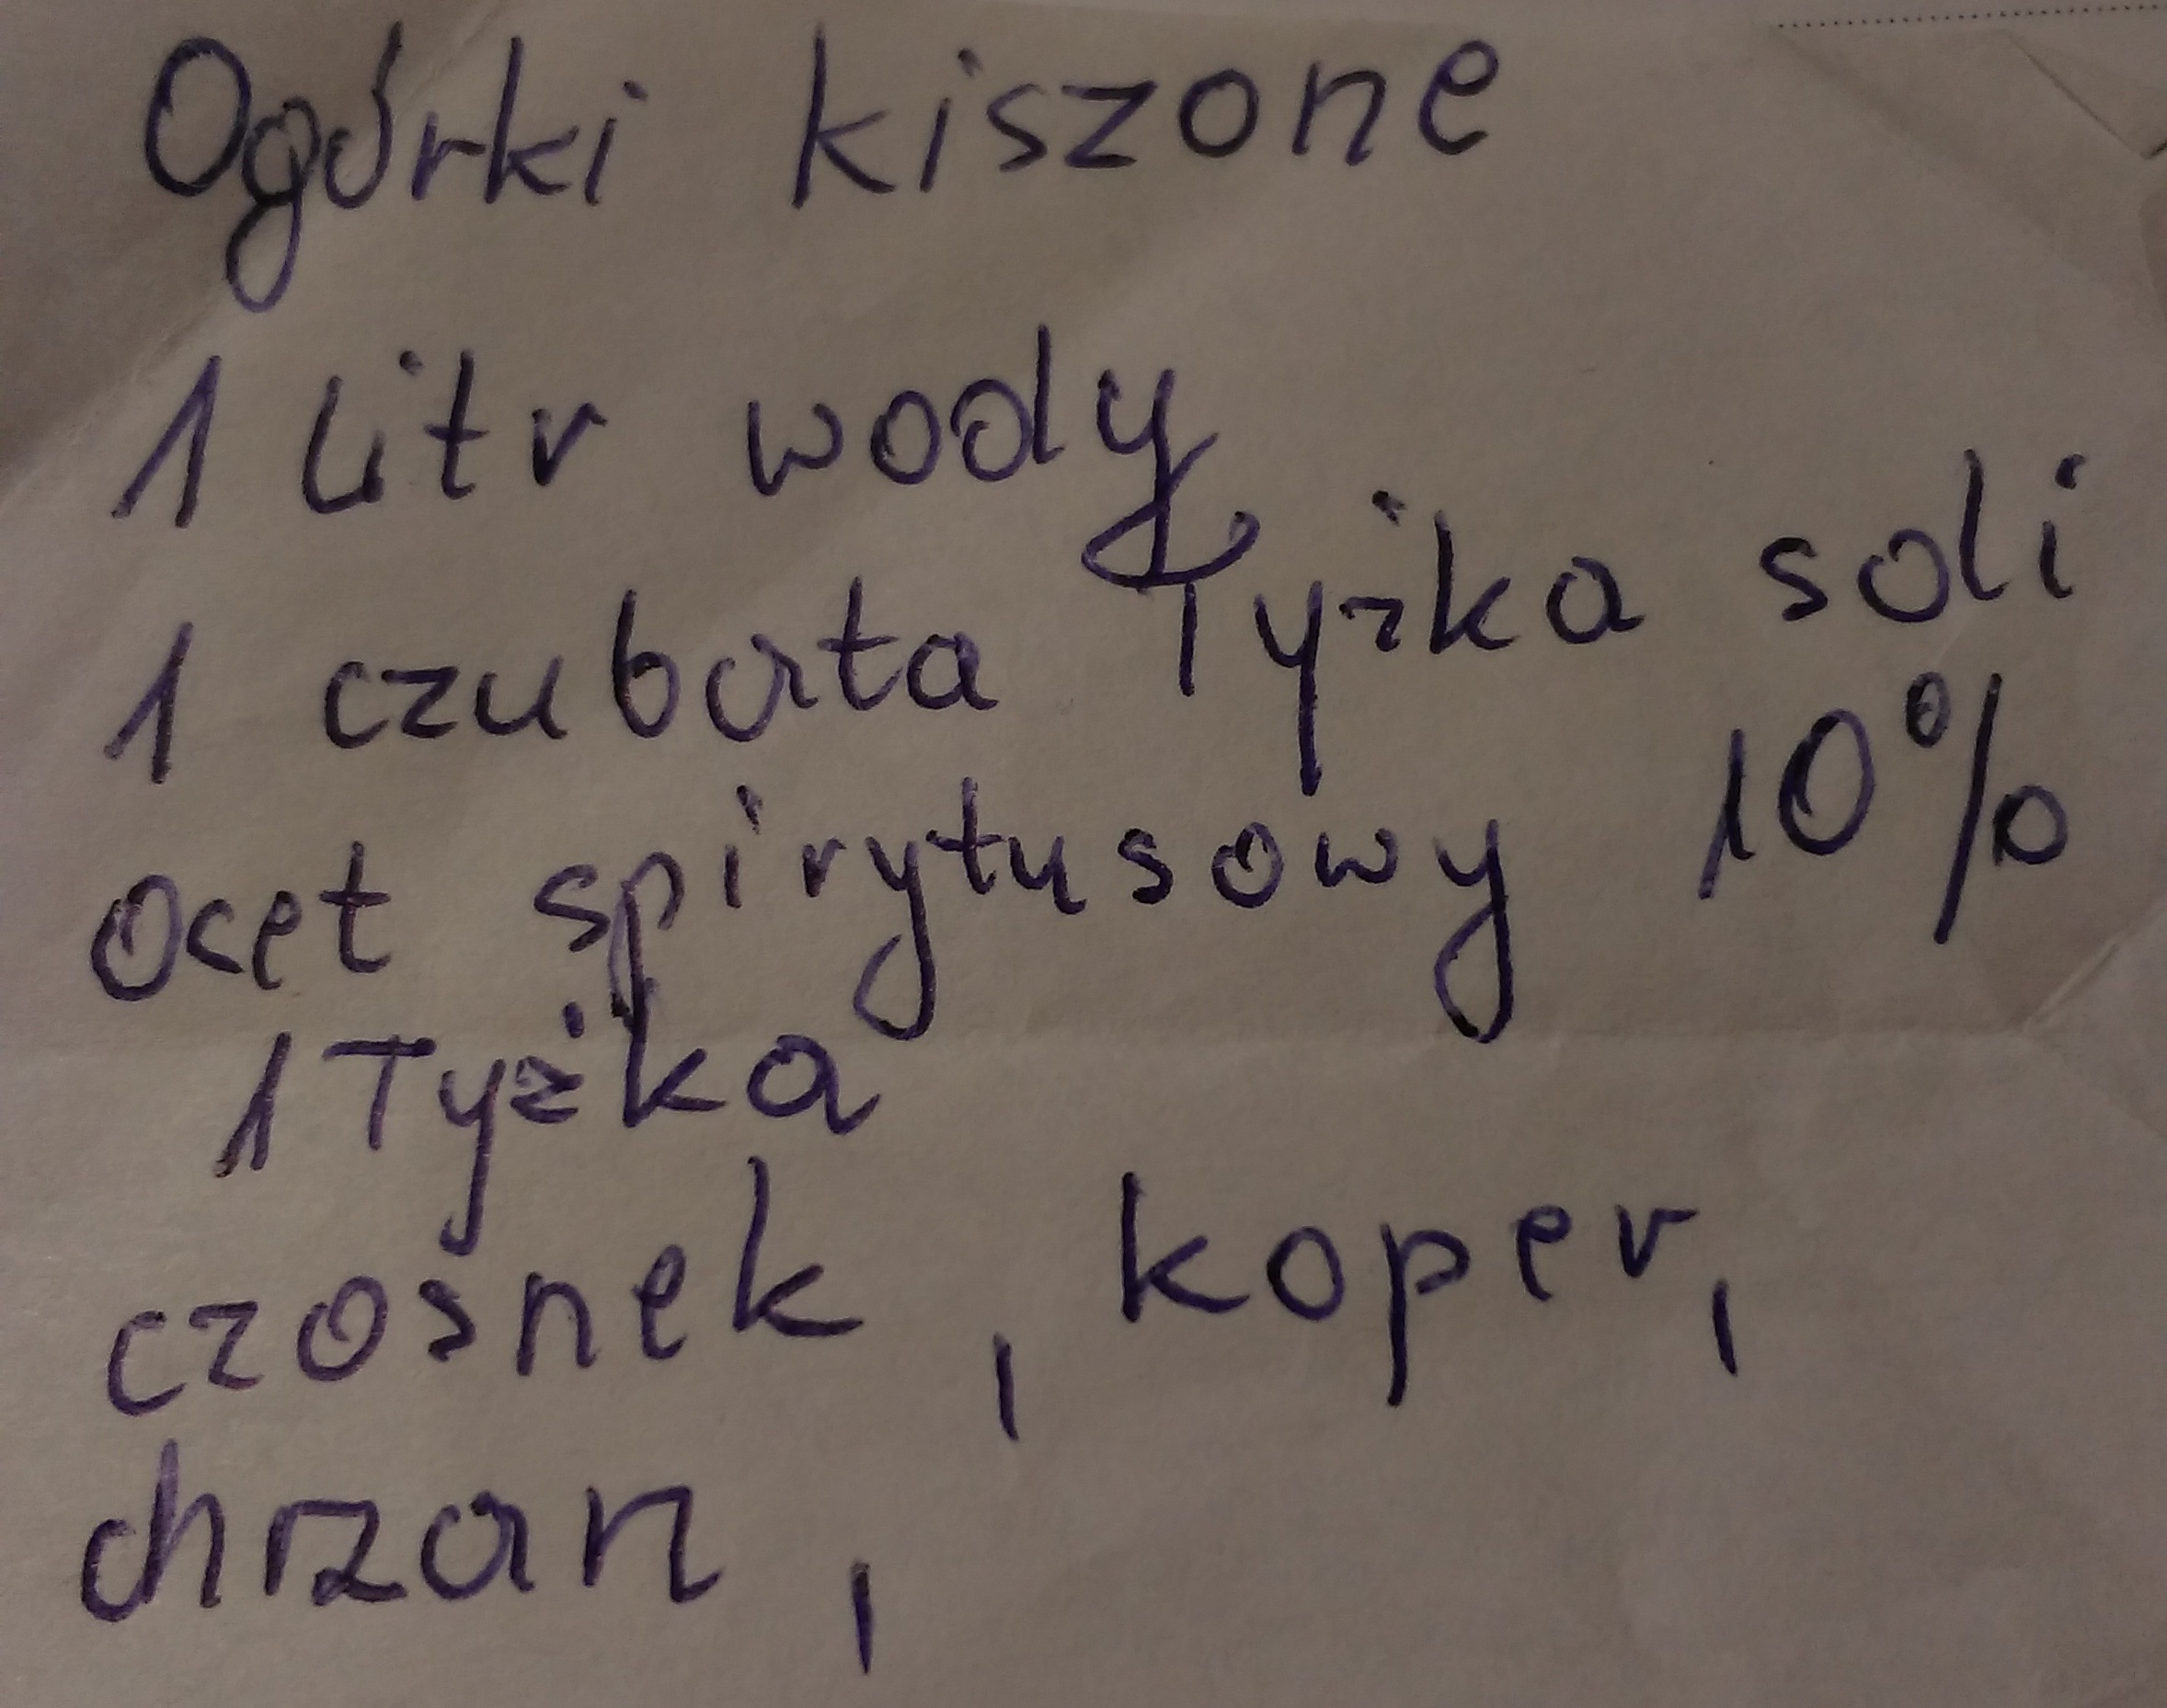 Ogórki kiszone
1 litr wody
1 czubata Tyżka soli
Ocet spirytusowy 10%
1 Tyżka
czosnek, koper,
chrzan,